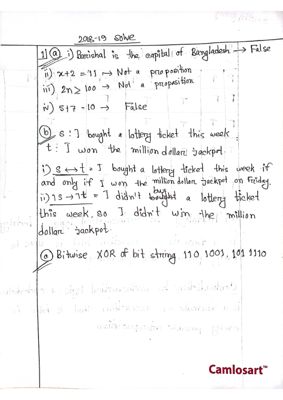 2018-19 solve
1) (a) i) Barishal is the capital of Bangladesh → False
ii) x+2 = 11 → Not a proposition
iii) 2n ≥ 100 → Not a proposition
iv) 5+7 = 10 → False
(b) s : I bought a lottery ticket this week
t : I won the million dollar jackpot.
i) s ↔ t = I bought a lottery ticket this week if
and only if I won the million dollar jackpot on Friday.
ii) ¬s → ¬t = I didn't buy a lottery ticket
this week, so I didn't win the million
dollar jackpot
Bitwise XOR of bit string, 110 1001, 101 1110
Camlosart™